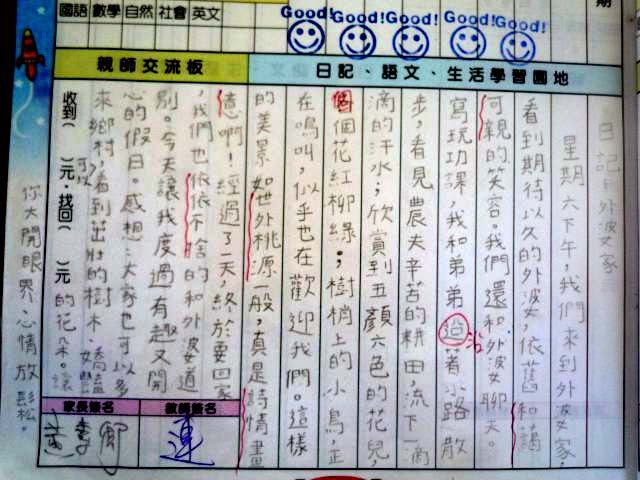 國語 數學 自然 社會 英文
Good! Good! Good! Good! Good!
期
親師交流板
日記、語文、生活學習園地
日記:外婆家
星期六下午,我們來到外婆家,
看到期待以久的外婆,依舊和藹
可親的笑容。我們還和外婆聊天。
寫玩功課,我和弟弟沿著小路散
步,看見農夫辛苦的耕田,流下一滴
滴的汗水;欣賞到五顏六色的花兒,
個個花紅柳綠;樹梢上的小鳥,正
在鳴叫,似乎也在歡迎我們。這樣
的美景如世外桃源一般,真是詩情畫
意啊!經過了一天,終於要回家
,我們也依依不捨的和外婆道
別。今天讓我度過有趣又開
心的假日。感想:大家也可以多
來鄉村,可以看到茁壯的樹木、嬌豔
的花朵。讓
你大開眼界、心情放鬆。
收到( )元.找回( )元
家長簽名
教師簽名
連